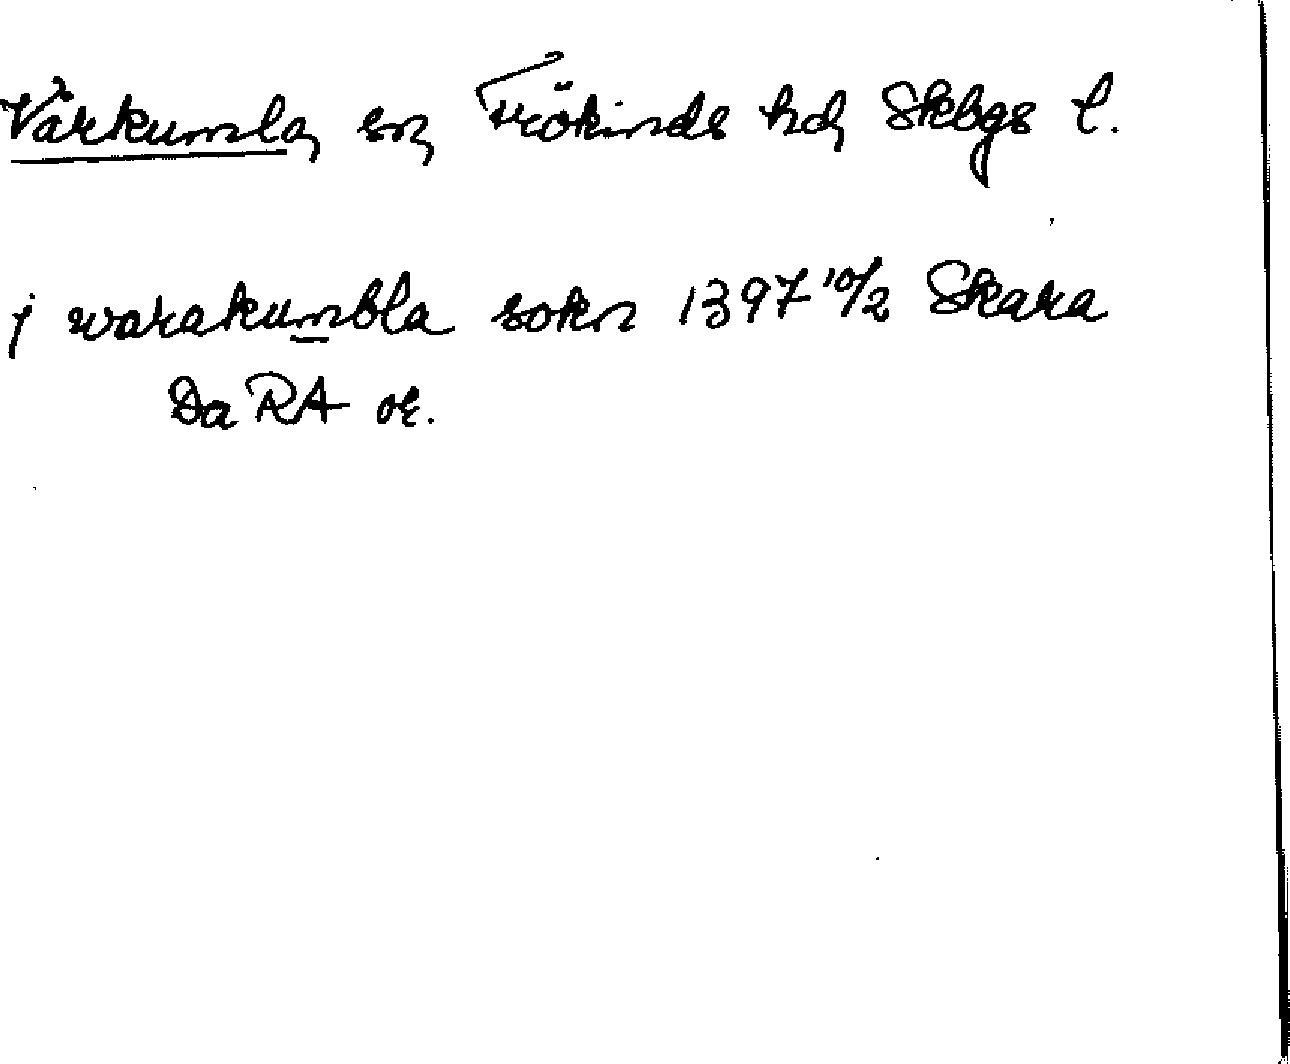 Vårkumla, sn, Frökinds hd, Skbgs l.
j warakumbla sokn 1397 10/2 Skara
Da RA or.